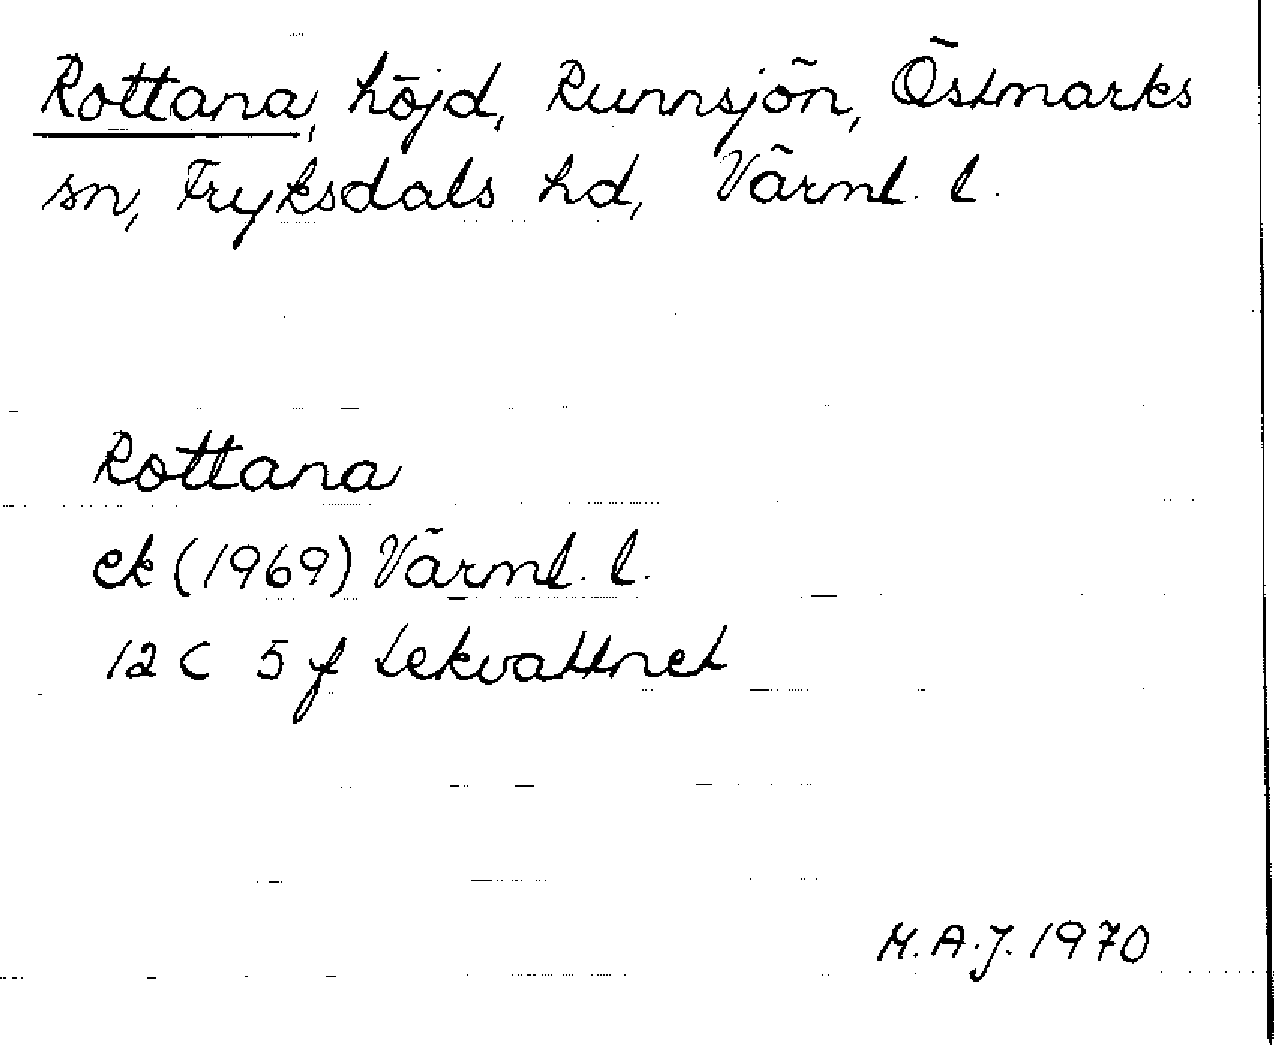 Rottana, höjd, Runnsjön, Östmarks
sn, Fryksdals hd, Värml. l.
Rottana
ek (1969) Värml. l.
12 C 5 f Lekvattnet
M.A.J. 1970